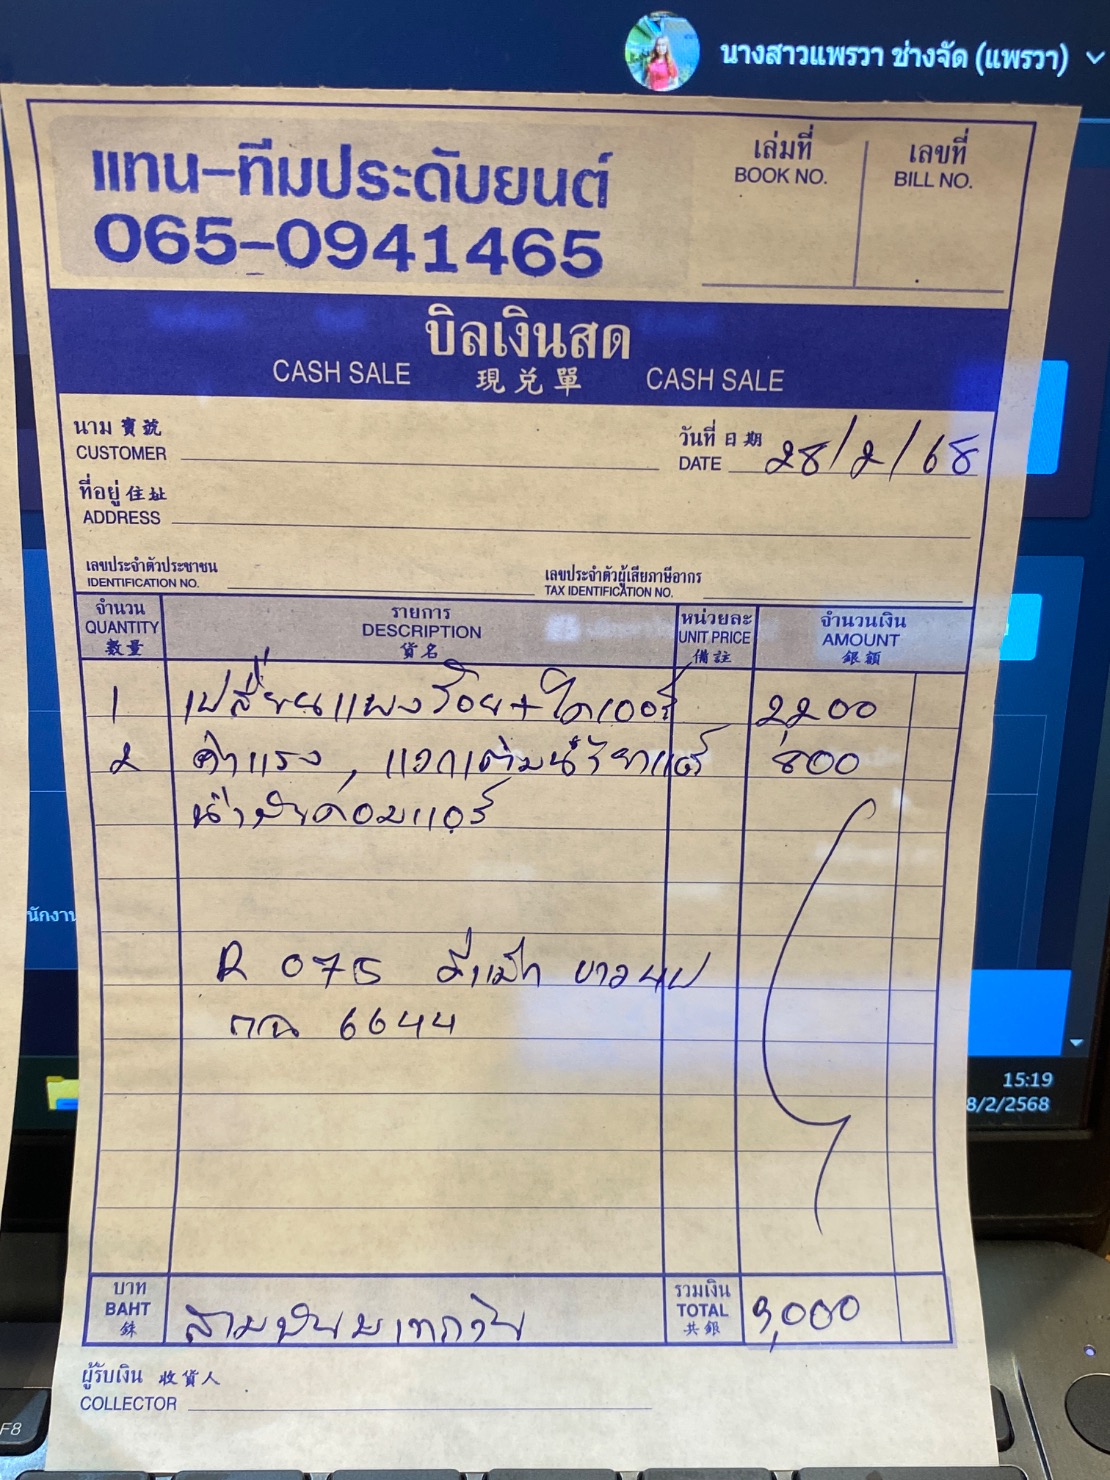 นางสาวแพรวา ช่างจัด (แพรวา)
แทน-ทีมประดับยนต์
065-0941465
เล่มที่
BOOK NO.
เลขที่
BILL NO.
บิลเงินสด
CASH SALE 現兑單 CASH SALE
นาม 寶號
CUSTOMER
วันที่ 日期
DATE 28/2/68
ที่อยู่ 住址
ADDRESS
เลขประจำตัวประชาชน
IDENTIFICATION NO.
เลขประจำตัวผู้เสียภาษีอากร
TAX IDENTIFICATION NO.
จำนวน
QUANTITY
數量
รายการ
DESCRIPTION
貨名
หน่วยละ
UNIT PRICE
備註
จำนวนเงิน
AMOUNT
銀額
1 เปลี่ยนแผงร้อย+ไดเออร์ 2200
2 ค่าแรง, แวกเติมน้ำยาแอร์ 800
น้ำมันคอมแอร์
R 075 ขาว 4ป
กฉ 6644
นักงาน
15:19
8/2/2568
บาท
BAHT
銖
สามพันบาทถ้วน
รวมเงิน
TOTAL
共銀
3,000
ผู้รับเงิน 收貨人
COLLECTOR
F8